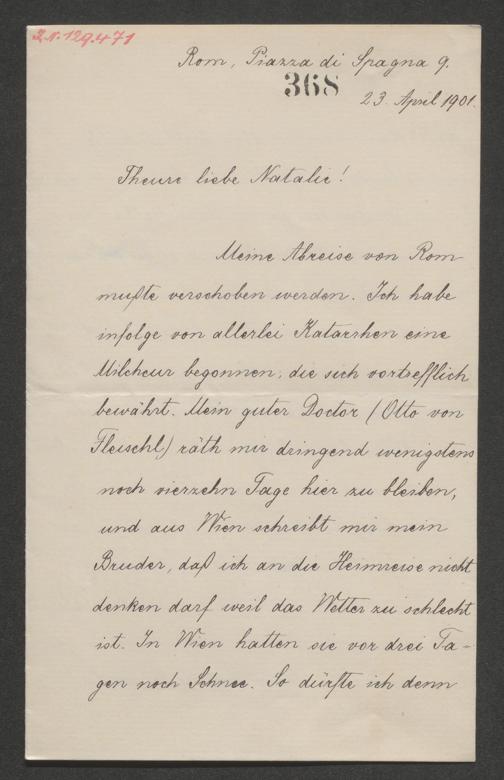 I.N. 129.471
Rom, Piazza di Spagna 9.
368
23. April 1901.
Theure liebe Natalie!
Meine Abreise von Rom
mußte verschoben werden. Ich habe
infolge von allerlei Katarrhen eine
Milchcur begonnen, die sich vortrefflich
bewährt. Mein guter Doctor (Otto von
Fleischl) räth mir dringend wenigstens
noch vierzehn Tage hier zu bleiben,
und aus Wien schreibt mir mein
Bruder, daß ich an die Heimreise nicht
denken darf weil das Wetter zu schlecht
ist. In Wien hatten sie vor drei Ta-
gen noch Schnee. So dürfte ich denn